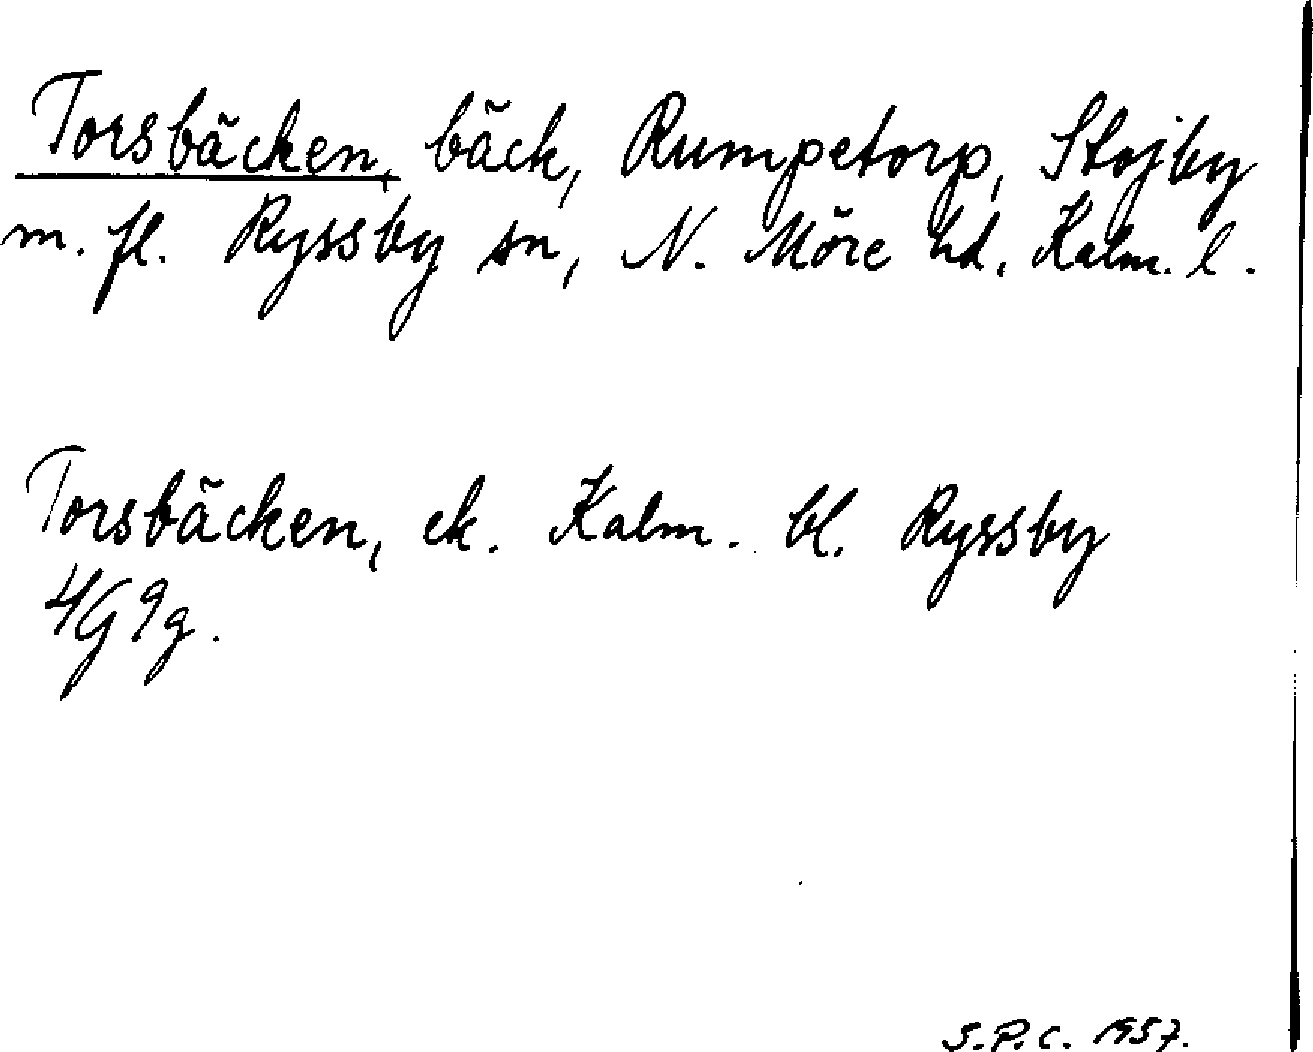 Torsbäcken, bäck, Rumpetorp, Stojby
m. fl. Ryssby sn, N. Möre hd, Kalm. l.
Torsbäcken, ek. Kalm. bl. Ryssby
4G9g.
S.P.C. 1957.